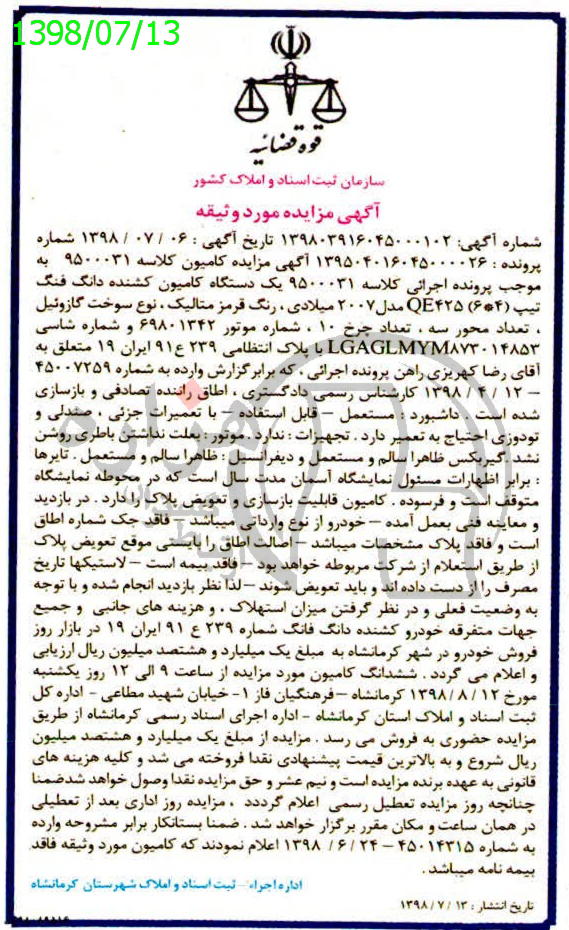 1398/07/13
قوه قضائیه
سازمان ثبت اسناد و املاک کشور
آگهی مزایده مورد وثیقه
شماره آگهی: ۱۳۹۸۰۳۹۱۶۰۴۵۰۰۰۱۰۲ تاریخ آگهی : ۰۶ / ۰۷ / ۱۳۹۸ شماره
پرونده : ۱۳۹۵۰۴۰۱۶۰۴۵۰۰۰۰۲۶ آگهی مزایده کامیون کلاسه ۹۵۰۰۰۳۱ به
موجب پرونده اجرائی کلاسه ۹۵۰۰۰۳۱ یک دستگاه کامیون کشنده دانگ فنگ
تیپ (۴*۶) QE۴۲۵ مدل ۲۰۰۷ میلادی ، رنگ قرمز متالیک ، نوع سوخت گازوئیل
، تعداد محور سه ، تعداد چرخ ۱۰ ، شماره موتور ۶۹۸۰۱۳۴۲ و شماره شاسی
LGAGLMYM۸۷۳۰۱۴۸۵۳ ، پلاک انتظامی ۲۳۹ ع ۹۱ ایران ۱۹ متعلق به
آقای رضا کهریزی راهن پرونده اجرائی ، که برابر گزارش وارده به شماره ۴۵۰۰۷۲۵۹
– ۱۲ / ۴ / ۱۳۹۸ کارشناس رسمی دادگستری ، اطاق راننده تصادفی و بازسازی
شده است . داشبورد : مستعمل – قابل استفاده – با تعمیرات جزئی ، صندلی و
تودوزی احتیاج به تعمیر دارد . تجهیزات : ندارد . موتور : بعلت نداشتن باطری روشن
نشد .گیربکس ظاهرا سالم و مستعمل و دیفرانسیل : ظاهرا سالم و مستعمل . تایرها
: برابر اظهارات مسئول نمایشگاه آسمان مدت سال است که در محوطه نمایشگاه
متوقف است و فرسوده . کامیون قابلیت بازسازی و تعویض پلاک را دارد . در بازدید
و معاینه فنی بعمل آمده – خودرو از نوع وارداتی میباشد – فاقد حک شماره اطاق
است و فاقد پلاک مشخصات میباشد – اصالت اطاق را بایستی موقع تعویض پلاک
از طریق استعلام از شرکت مربوطه خواهد بود – فاقد بیمه است – لاستیکها تاریخ
مصرف را از دست داده اند و باید تعویض شوند – لذا نظر بازدید انجام شده و با توجه
به وضعیت فعلی و در نظر گرفتن میزان استهلاک ، و هزینه های جانبی و جمیع
جهات متفرقه خودرو کشنده دانگ فانگ شماره ۲۳۹ ع ۹۱ ایران ۱۹ در بازار روز
فروش خودرو در شهر کرمانشاه به مبلغ یک میلیارد و هشتصد میلیون ریال ارزیابی
و اعلام می گردد . ششدانگ کامیون مورد مزایده از ساعت ۹ الی ۱۲ روز یکشنبه
مورخ ۱۲ / ۸ / ۱۳۹۸ کرمانشاه –فرهنگیان فاز ۱- خیابان شهید مطاعی - اداره کل
ثبت اسناد و املاک استان کرمانشاه - اداره اجرای اسناد رسمی کرمانشاه از طریق
مزایده حضوری به فروش می رسد . مزایده از مبلغ یک میلیارد و هشتصد میلیون
ریال شروع و به بالاترین قیمت پیشنهادی نقدا فروخته می شد و کلیه هزینه های
قانونی به عهده برنده مزایده است و نیم عشر و حق مزایده نقدا وصول خواهد شدضمنا
چنانچه روز مزایده تعطیل رسمی اعلام گرددد ، مزایده روز اداری بعد از تعطیلی
در همان ساعت و مکان مقرر برگزار خواهد شد . ضمنا بستانکار برابر مشروحه وارده
به شماره ۴۵۰۱۴۳۱۵ – ۲۴ / ۶ / ۱۳۹۸ اعلام نمودند که کامیون مورد وثیقه فاقد
بیمه نامه میباشد .
اداره اجراء – ثبت اسناد و املاک شهرستان کرمانشاه
تاریخ انتشار : ۱۳ / ۷ / ۱۳۹۸